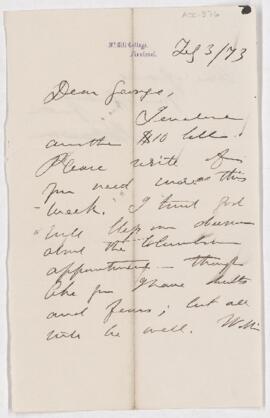 McGill College,
Montreal.
Feby 3/73
Dear George,
I enclose
another $10 bill.
Please write if
you need more this
week. I trust God
will bless our
about the Columbia
appointment – though
like you I have doubts
and fears; but all
will be well.